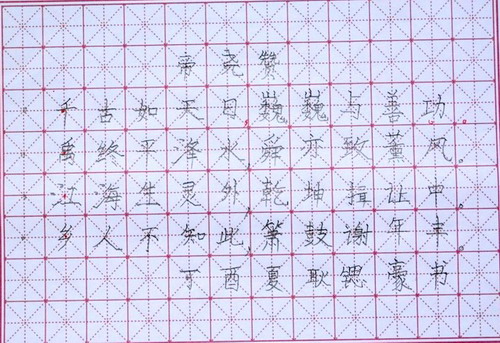 帝尧赞
千古如天日,巍巍与善功。
禹终平洚水,舜亦致薰风。
江海生灵外,乾坤揖让中。
乡人不知此,箫鼓谢年丰。
丁酉夏耿锶豪书